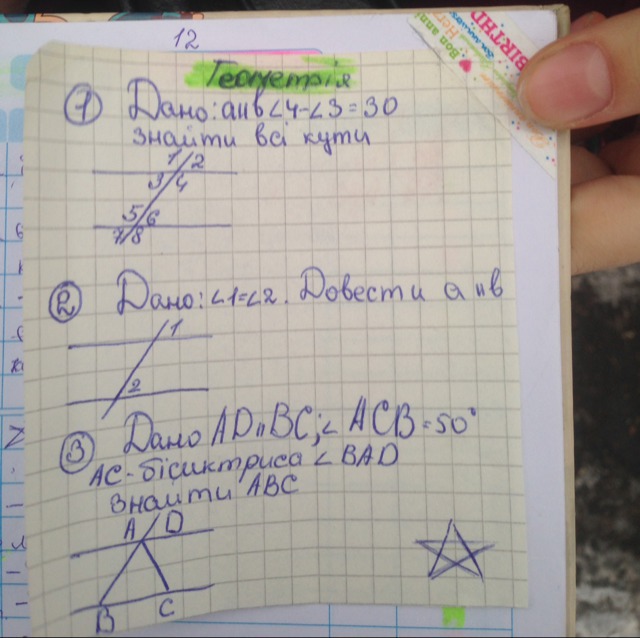 12
Bon anni
BIRTHD
Геометрія
1 Дано: a||b ∠4-∠3=30
Знайти всі кути
1 2
3 4
5 6
7 8
2 Дано: ∠1=∠2. Довести a ıı b
1
2
3 Дано AD ıı BC; ∠ ACB = 50°
AC - бісиктриса ∠ BAD
Знайти ABC
A D
B C